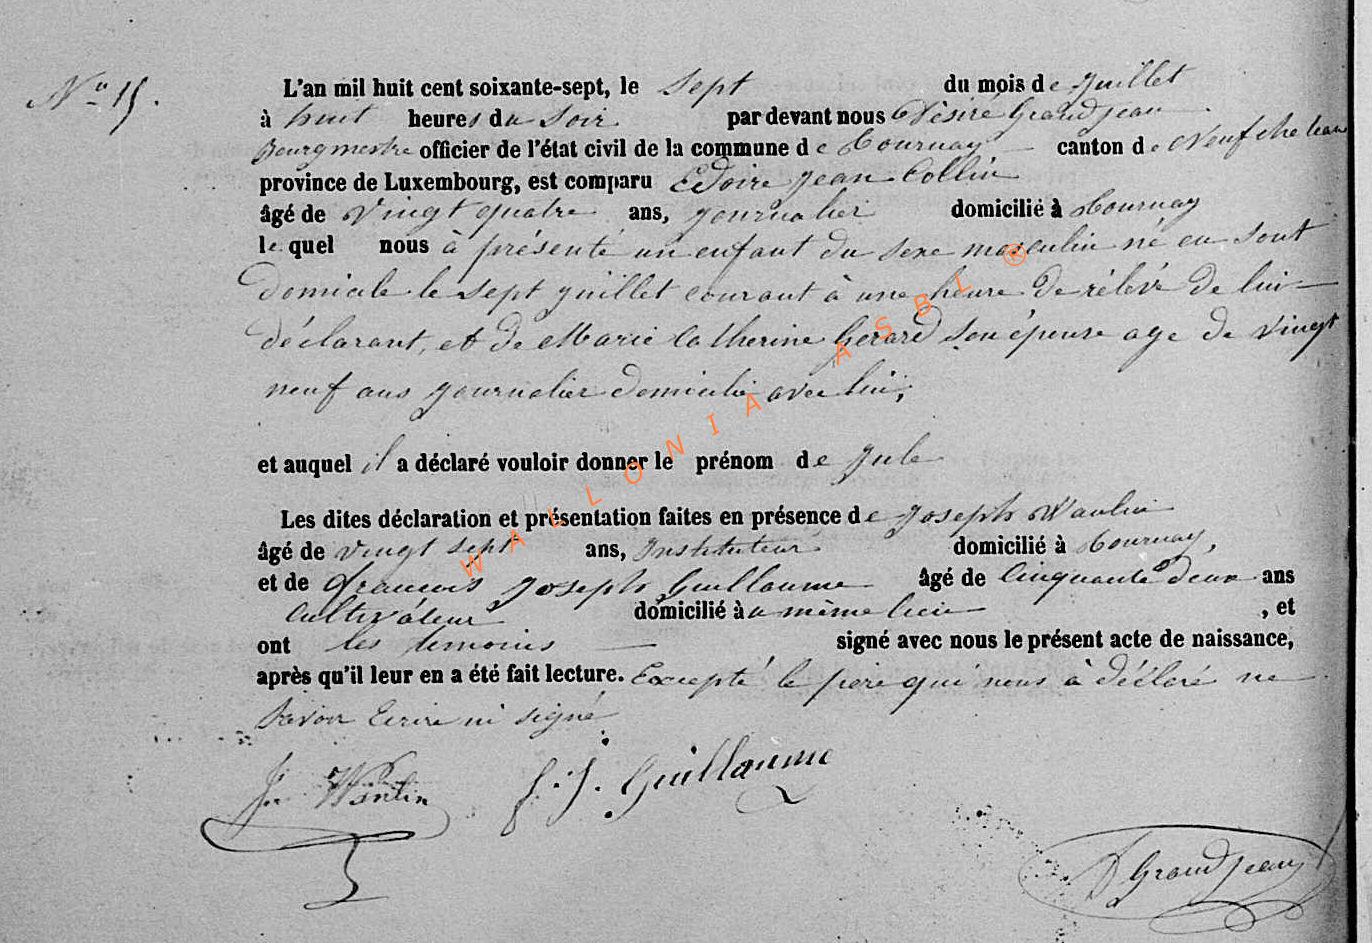 Nº 15.
L'an mil huit cent soixante-sept, le Sept du mois de juillet
à huit heures du Soir par devant nous Désiré Grandjean
Bourgmestre officier de l'état civil de la commune de Tournay canton de Neufchateau
province de Luxembourg, est comparu Jean Collin
âgé de Vingt quatre ans, journalier domicilié à Tournay
lequel nous à présenté un enfant du sexe masculin né en sont
domicile le Sept juillet courant à une heure de rélévé de lui
déclarant, et de Marie Catherine Gerard son épouse age de vingt
neuf ans journalier domicilié avec lui,
et auquel il a déclaré vouloir donner le prénom de Jule
Les dites déclaration et présentation faites en présence de Joseph Wautin
âgé de vingt sept ans, Instituteur domicilié à Tournay,
et de Francois Joseph Guillaume âgé de Cinquante deux ans
Cultivateur domicilié au même lieu , et
ont les temoins signé avec nous le présent acte de naissance,
après qu'il leur en a été fait lecture. Excepté le père qui nous à déclaré ne
Savoir Ecrire ni signé
Jh Wautin F. J. Guillaume
D Grandjean
WALLONIA ASBL ®